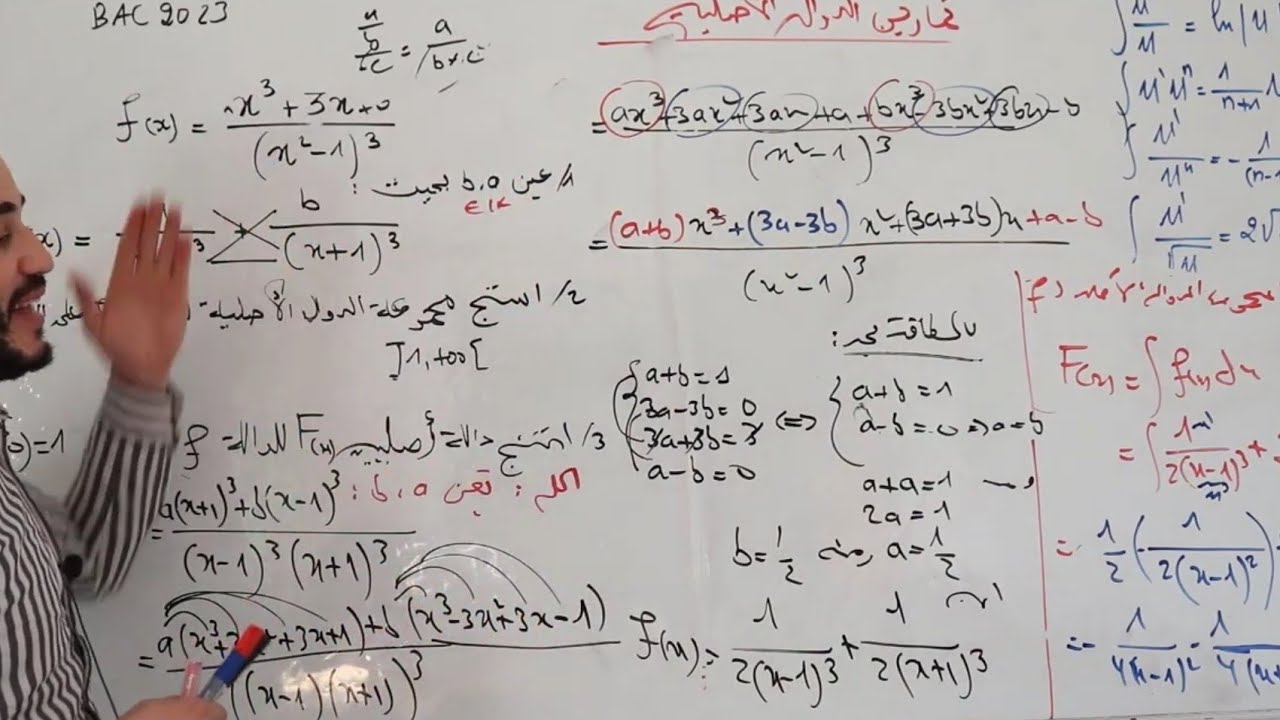 BAC 2023
تمارين الدوال الأصلية
f(x) = x³ + 3x + 0 / (x² - 1)³
1/ عين b،a بحيث :
∈ IR
(x) = b / (x+1)³
2/ استنتج مجموعة الدوال الأصلية
]1, +∞[
(0)=1
3/ استنتج دالة أصلية F(x) للدالة f
الحل : تعين b،a :
= a(x+1)³ + b(x-1)³ / (x-1)³ (x+1)³
= a(x³+3 +3x+1) + b(x³-3x²+3x-1) / ((x-1)(x+1))³
= ax³+3ax²+3ax+a+bx³-3bx²+3bx-b / (x²-1)³
= (a+b)x³+(3a-3b)x²+(3a+3b)x+a-b / (x²-1)³
بالمطابقة نجد :
{ a+b=1
3a-3b=0
3a+3b=3
a-b=0
⇔ { a+b=1
a-b=0 ⇒ a=b
a+a=1
2a=1
b=1/2 ومنه a=1/2
f(x) = 1 / 2(x-1)³ + 1 / 2(x+1)³
∫ u'/u = ln|u
∫ u'uⁿ = 1/n+1
∫ u'/uⁿ = - 1/(n-1
∫ u'/√u = 2√
F(x) = ∫ f(x)dx
= ∫ 1 / 2(x-1)³ +
= 1/2 (- 1 / 2(x-1)²)
= - 1 / 4(x-1)² - 1 / 4(x+